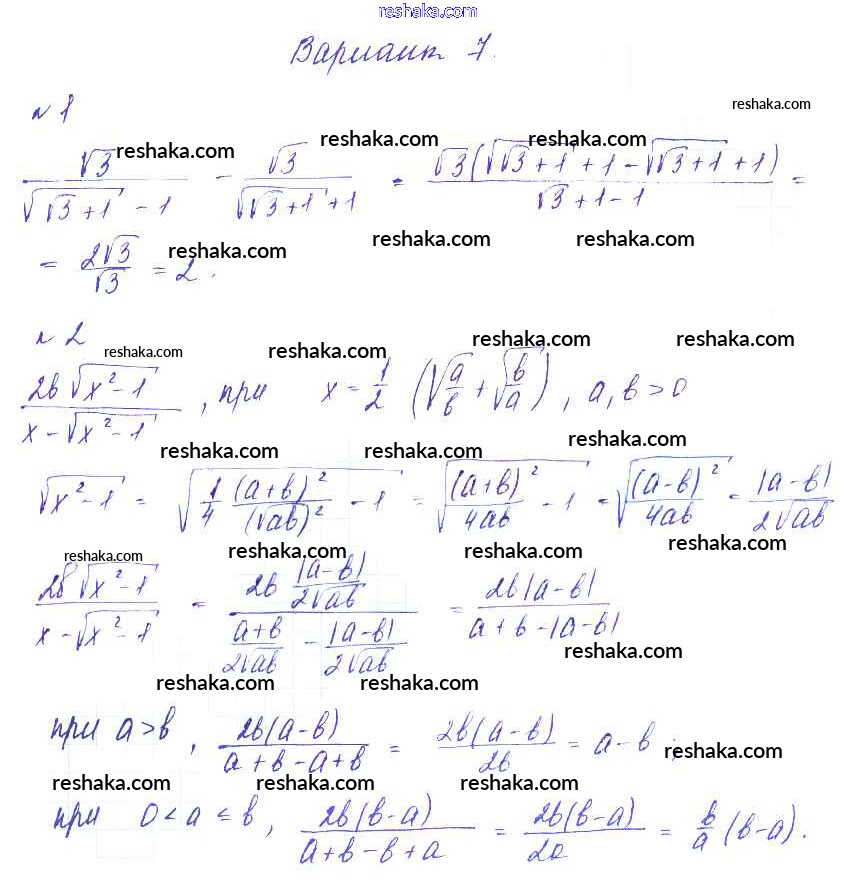 reshaka.com
Вариант 7.
reshaka.com
N 1
reshaka.com reshaka.com reshaka.com
√3/(√(√3+1) - 1) - √3/(√(√3+1) + 1) = √3(√(√3+1) + 1 - √(√3+1) + 1)/(√3+1-1) =
reshaka.com reshaka.com reshaka.com
= 2√3/√3 = 2.
N 2
reshaka.com reshaka.com reshaka.com reshaka.com
2b√(x²-1)/(x-√(x²-1)), при x = 1/2 (√(a/b) + √(b/a)), a, b > 0
reshaka.com reshaka.com reshaka.com
√(x²-1) = √(1/4 (a+b)²/(√ab)² - 1) = √((a+b)²/4ab - 1) = √((a-b)²/4ab) = |a-b|/2√ab
reshaka.com reshaka.com reshaka.com reshaka.com
2b√(x²-1)/(x-√(x²-1)) = (2b |a-b|/2√ab)/((a+b)/2√ab - |a-b|/2√ab) = 2b|a-b|/(a+b-|a-b|)
reshaka.com reshaka.com reshaka.com
при a>b, 2b(a-b)/(a+b-a+b) = 2b(a-b)/2b = a-b;
reshaka.com
reshaka.com reshaka.com reshaka.com
при 0<a≤b, 2b(b-a)/(a+b-b+a) = 2b(b-a)/2a = b/a (b-a).